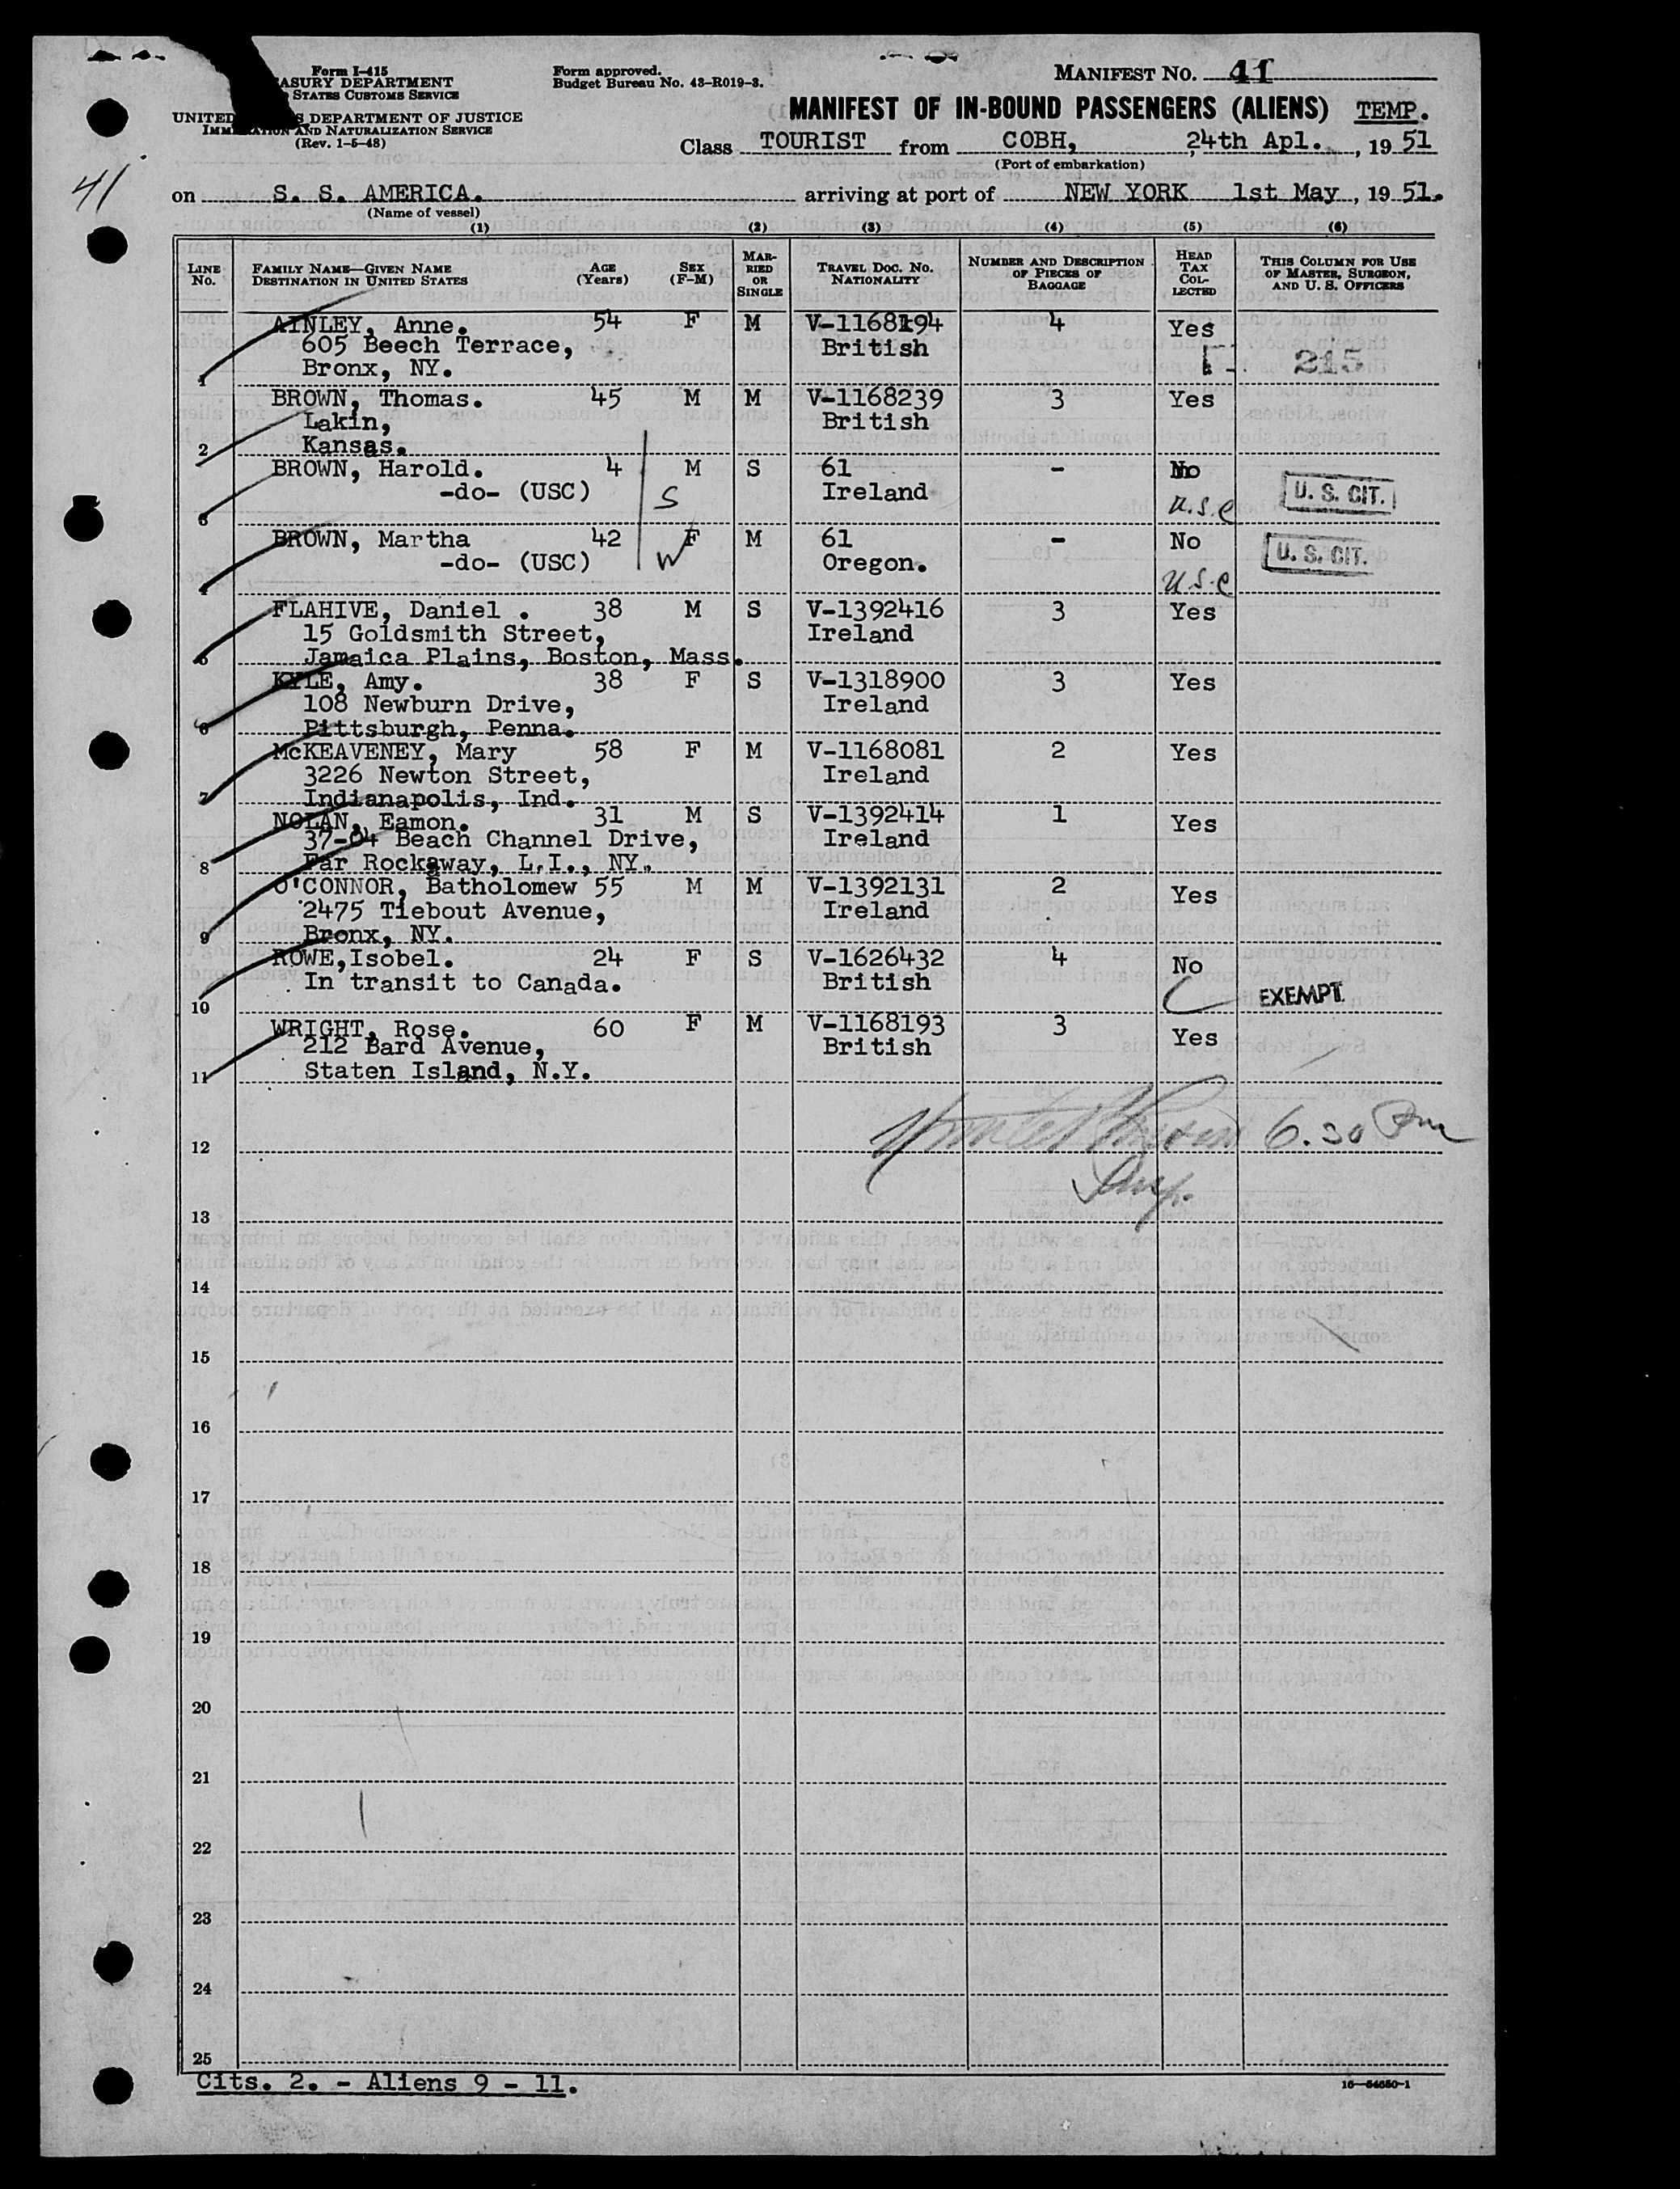 Form I-415
ASURY DEPARTMENT
STATES CUSTOMS SERVICE
UNITED S DEPARTMENT OF JUSTICE
IMMIGRATION AND NATURALIZATION SERVICE
(Rev. 1-5-48)
Form approved.
Budget Bureau No. 43-R019-3.
MANIFEST NO. 41
MANIFEST OF IN-BOUND PASSENGERS (ALIENS) TEMP.
Class TOURIST from COBH, 24th Apl., 19 51
(Port of embarkation)
41
on S. S. AMERICA. arriving at port of NEW YORK 1st May, 19 51.
(Name of vessel)
(1) (2) (3) (4) (5) (6)
LINE NO. FAMILY NAME—GIVEN NAME DESTINATION IN UNITED STATES AGE (YEARS) SEX (F-M) MARRIED OR SINGLE TRAVEL DOC. NO. NATIONALITY NUMBER AND DESCRIPTION OF PIECES OF BAGGAGE HEAD TAX COLLECTED THIS COLUMN FOR USE OF MASTER, SURGEON, AND U. S. OFFICERS
AINLEY, Anne. 54 F M V-1168194 4 Yes
605 Beech Terrace, British 215
1 Bronx, NY.
BROWN, Thomas. 45 M M V-1168239 3 Yes
Lakin, British
2 Kansas.
BROWN, Harold. 4 M S 61 - No
-do- (USC) S Ireland U.S.C U. S. CIT.
3
BROWN, Martha 42 F M 61 - No
-do- (USC) W Oregon. U. S. CIT.
4 U.S.C
FLAHIVE, Daniel . 38 M S V-1392416 3 Yes
15 Goldsmith Street, Ireland
5 Jamaica Plains, Boston, Mass.
KYLE, Amy. 38 F S V-1318900 3 Yes
108 Newburn Drive, Ireland
6 Pittsburgh, Penna.
McKEAVENEY, Mary 58 F M V-1168081 2 Yes
3226 Newton Street, Ireland
7 Indianapolis, Ind.
NOLAN, Eamon. 31 M S V-1392414 1 Yes
37-04 Beach Channel Drive, Ireland
8 Far Rockaway, L.I., NY.
O'CONNOR, Batholomew 55 M M V-1392131 2 Yes
2475 Tiebout Avenue, Ireland
9 Bronx, NY.
ROWE,Isobel. 24 F S V-1626432 4 No
In transit to Canada. British EXEMPT.
10
WRIGHT, Rose. 60 F M V-1168193 3 Yes
212 Bard Avenue, British
11 Staten Island, N.Y.
6.30 Pm
12
Insp.
13
14
15
16
17
18
19
20
21
22
23
24
25
Cits. 2. - Aliens 9 - 11.
16—54650-1